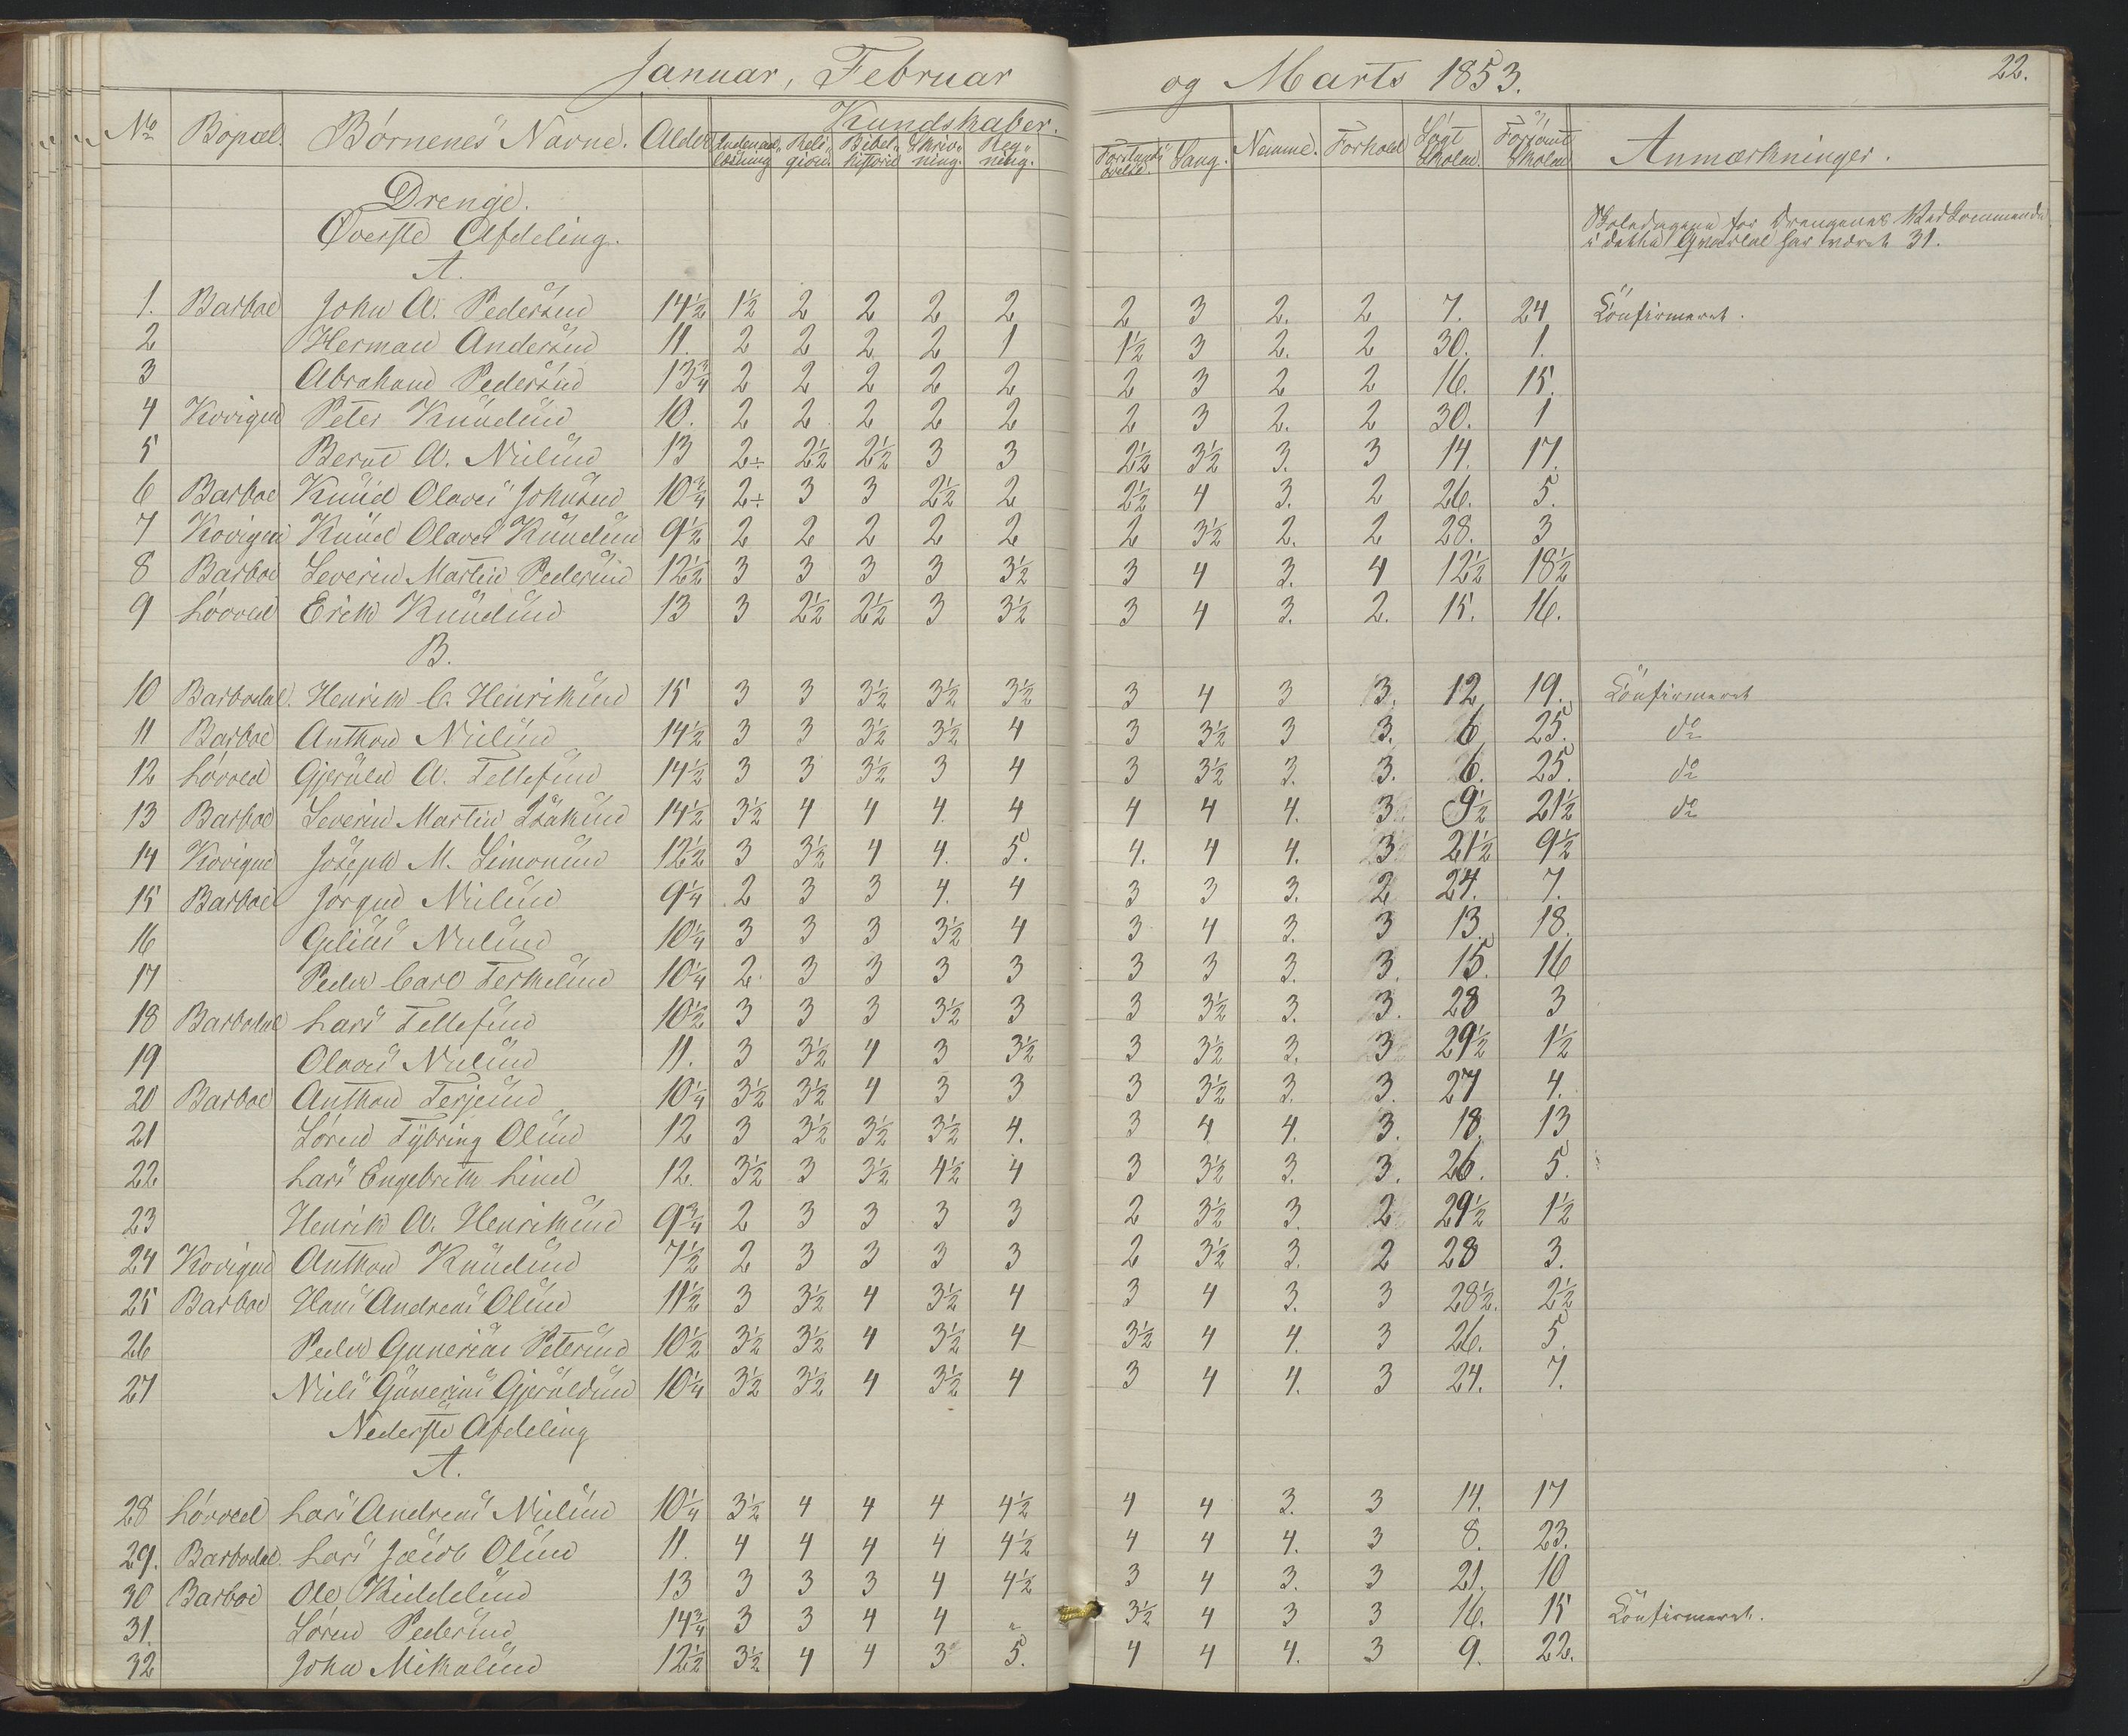 Januar, Februar og Marts 1853. 22.
No Bopæl. Børnenes Navne. Alder Kundskaber. Indenad- læsning Reli- gion. Bibel- historie Skriv- ning. Reg- ning. Forstands- øvelse. Sang. Nemme. Forhold Søgt Skolen. Forsømt Skolen Anmærkninger.
Drenge.
Øverste Afdeling.
Skoledagene for Drengenes Vedkommende
i dette Qvartal har været 31.
A.
1. Barboe John A. Pedersen 14½ 1½ 2 2 2 2 2 3 2. 2 7. 24 Confirmeret.
2 Herman Andersen 11. 2 2 2 2 1 1½ 3 2. 2 30. 1.
3 Abraham Pedersen 13¾ 2 2 2 2 2 2 3 2 2 16. 15.
4 Kovigen Peter Knudsen 10. 2 2 2 2 2 2 3 2. 2 30. 1
5 Bernt A. Nielsen 13 2÷ 2½ 2½ 3 3 2½ 3½ 3. 3 14. 17.
6 Barboe Knud Olaves Johnsen 10¾ 2÷ 3 3 2½ 2 2½ 4 3. 2 26. 5.
7 Kovigen Knud Olaves Knudsen 9½ 2 2 2 2 2 2 3½ 2. 2 28. 3
8 Barboe Severin Martin Pedersen 12½ 3 3 3 3 3½ 3 4 3. 4 12½ 18½
9 Løvved Erik Knudsen 13 3 2½ 2½ 3 3½ 3 4 3. 2. 15. 16.
B.
10 Barbodal. Henrik C. Henriksen 15 3 3 3½ 3½ 3½ 3 4 3 3. 12 19. Confirmeret
11 Barboe Anthon Nielsen 14½ 3 3 3½ 3½ 4 3 3½ 3 3. 6 25. do
12 Løvved Gjeruld A. Tellefsen 14½ 3 3 3½ 3 4 3 3½ 3. 3. 6. 25. do
13 Barboe Severin Martin Isaksen 14½ 3½ 4 4 4. 4 4 4 4. 3 9½ 21½ do
14 Kovigen Joseph M. Simonsen 12½ 3 3½ 4 4. 5. 4. 4 4. 3 21½ 9½
15 Barboe Jørgen Nielsen 9¼ 2 3 3 4. 4 3 3 3. 2 24. 7.
16 Gelius Nielsen 10¼ 3 3 3 3½ 4 3 4 3. 3 13. 18.
17 Peder Carl Terkelsen 10¼ 2. 3 3 3 3 3 3 3. 3. 15. 16
18 Barbodal Lars Tellefsen 10½ 3 3 3 3½ 3 3 3½ 3. 3. 28 3
19 Olaves Nielsen 11. 3 3½ 4 3 3½ 3 3½ 3. 3 29½ 1½
20 Barboe Anthon Terjesen 10¼ 3½ 3½ 4 3 3 3 3½ 3. 3. 27 4.
21 Søren Tybring Olsen 12 3 3½ 3½ 3½ 4. 3 4 4. 3. 18. 13
22 Lars Engebreth Lind 12. 3½ 3 3½ 4½ 4 3 3½ 3. 3. 26. 5.
23 Henrik A. Henriksen 9¾ 2 3 3 3 3 2 3½ 3. 2 29½ 1½
24 Kovigen Anthon Knudsen 7½ 2 3 3 3 3 2 3½ 3. 2 28 3.
25 Barboe Hans Andreas Olsen 11½ 3 3½ 4 3½ 4 3 4 3. 3 28½. 2½
26 Peder Gunerius Petersen 10½ 3½ 3½ 4 3½ 4 3½ 4 4. 3 26. 5.
27 Niels Gunerius Gjeruldsen 10¼ 3½ 3½ 4 3½ 4 3 4 4. 3 24. 7.
Nederste Afdeling
A.
28 Løvved Lars Andreas Nielsen 10¼ 3½ 4 4 4 4½ 4 4 3. 3 14. 17
29. Barbodal. Lars Jacob Olsen 11. 4 4 4 4 4½ 4 4 4. 3 8. 23.
30 Barboe Ole Kiddelsen 13 3 3 3 4 4½ 3 4 3. 3 21. 10
31. Søren Pedersen 14¾ 3 3 4 4 " 3½ 4 3 3 16. 15 Confirmeret.
32 John Mikalsen 12½ 3½ 4 4 3 5. 4 4 4. 3 9. 22.